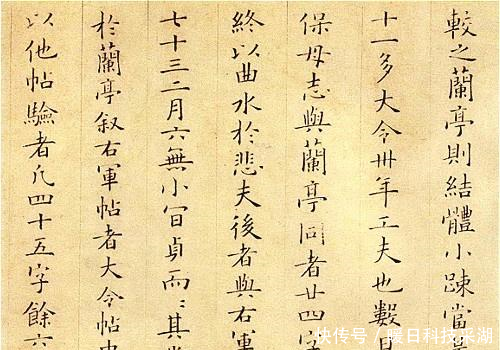 較之蘭亭則結體小踈當是
十一多大令卅年工夫也數日
保母志與蘭亭同者廿四字
終以曲水於悲夫後者與右軍
七十三二月六無小冝貞而〻其
於蘭亭叙右軍帖者大令帖
以他帖驗者凡四十五字餘六
快传号/暖日科技采湖